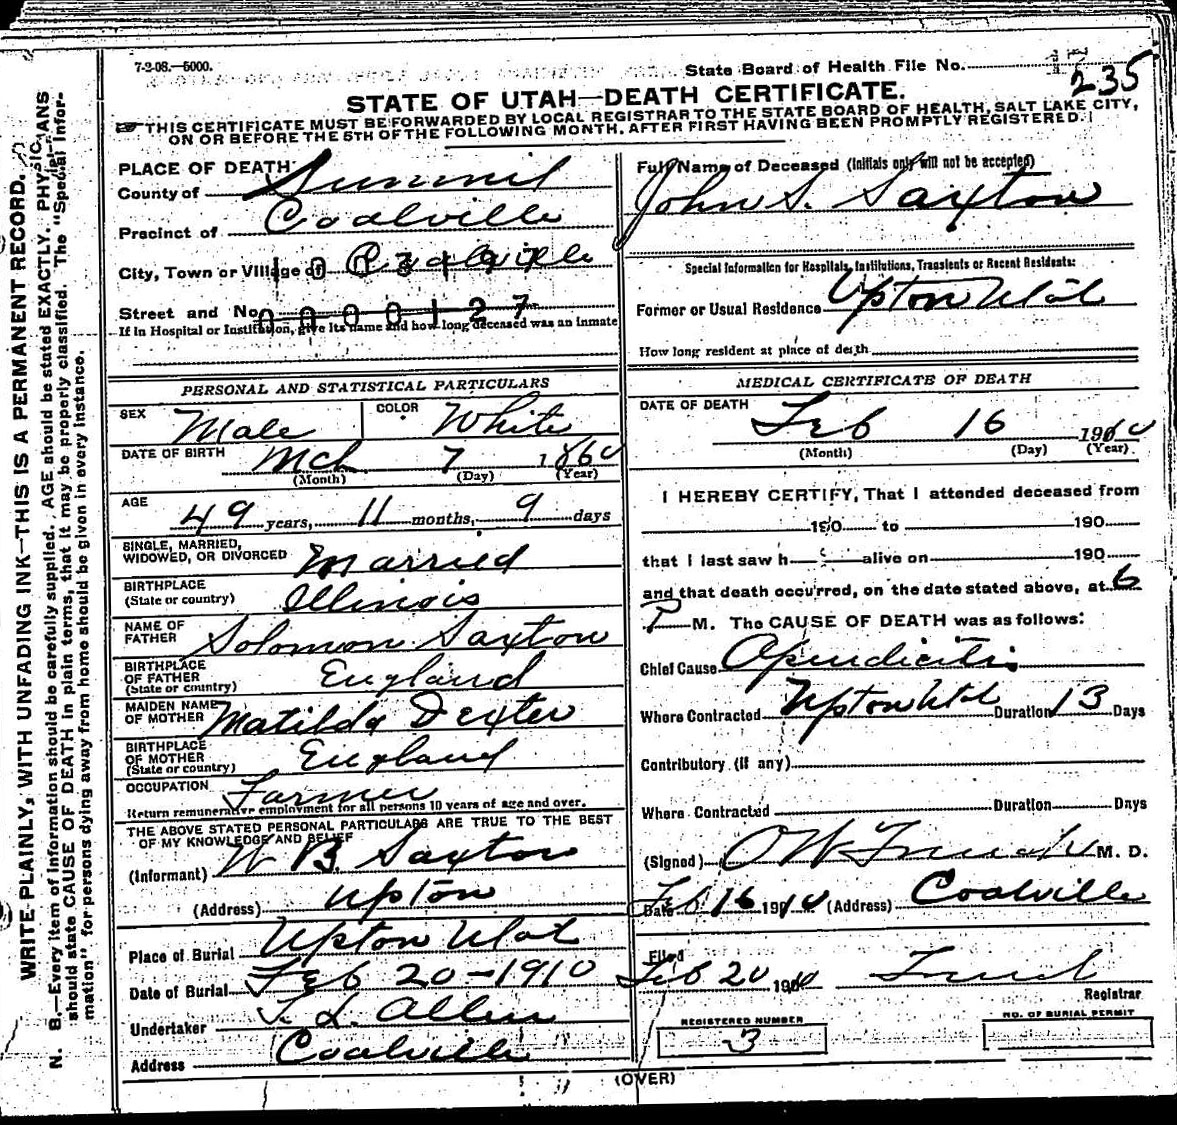 7-2-08.—5000.
State Board of Health File No.
235
STATE OF UTAH—DEATH CERTIFICATE.
THIS CERTIFICATE MUST BE FORWARDED BY LOCAL REGISTRAR TO THE STATE BOARD OF HEALTH, SALT LAKE CITY,
ON OR BEFORE THE 5TH OF THE FOLLOWING MONTH, AFTER FIRST HAVING BEEN PROMPTLY REGISTERED.
PLACE OF DEATH
County of Summit
Precinct of Coalville
City, Town or Village of Coalville
Street and No. 0000127
If in Hospital or Institution, give its name and how long deceased was an inmate
Full Name of Deceased (Initials only will not be accepted)
John S. Saxton
Special Information for Hospitals, Institutions, Transients or Recent Residents:
Former or Usual Residence Upton Utah
How long resident at place of death
PERSONAL AND STATISTICAL PARTICULARS
SEX Male COLOR White
DATE OF BIRTH Mch 7 1860
(Month) (Day) (Year)
AGE 49 years, 11 months, 9 days
SINGLE, MARRIED,
WIDOWED, OR DIVORCED Married
BIRTHPLACE
(State or country) Illinois
NAME OF
FATHER Solomon Saxton
BIRTHPLACE
OF FATHER
(State or country) England
MAIDEN NAME
OF MOTHER Matilda Dexter
BIRTHPLACE
OF MOTHER
(State or country) England
OCCUPATION Farmer
Return remunerative employment for all persons 10 years of age and over.
THE ABOVE STATED PERSONAL PARTICULARS ARE TRUE TO THE BEST
OF MY KNOWLEDGE AND BELIEF
(Informant) W B. Saxton
(Address) Upton
Place of Burial Upton Utah
Date of Burial Feb 20-1910
Undertaker T. L. Allen
Address Coalville
MEDICAL CERTIFICATE OF DEATH
DATE OF DEATH Feb 16 1910
(Month) (Day) (Year)
I HEREBY CERTIFY, That I attended deceased from
190 to 190
that I last saw h alive on 190
and that death occurred, on the date stated above, at 6
P M. The CAUSE OF DEATH was as follows:
Chief Cause Apendicitis
Where Contracted Upton Utah Duration 13 Days
Contributory (if any)
Where Contracted Duration Days
(Signed) M. D.
Date Feb 16 1910 (Address) Coalville
Filed
Feb 20 1910
Registrar
REGISTERED NUMBER
3
NO. OF BURIAL PERMIT
(OVER)
WRITE PLAINLY, WITH UNFADING INK—THIS IS A PERMANENT RECORD.
N. B.—Every item of information should be carefully supplied. AGE should be stated EXACTLY. PHYSICIANS
should state CAUSE OF DEATH in plain terms, that it may be properly classified. The "Special Infor-
mation" for persons dying away from home should be given in every instance.